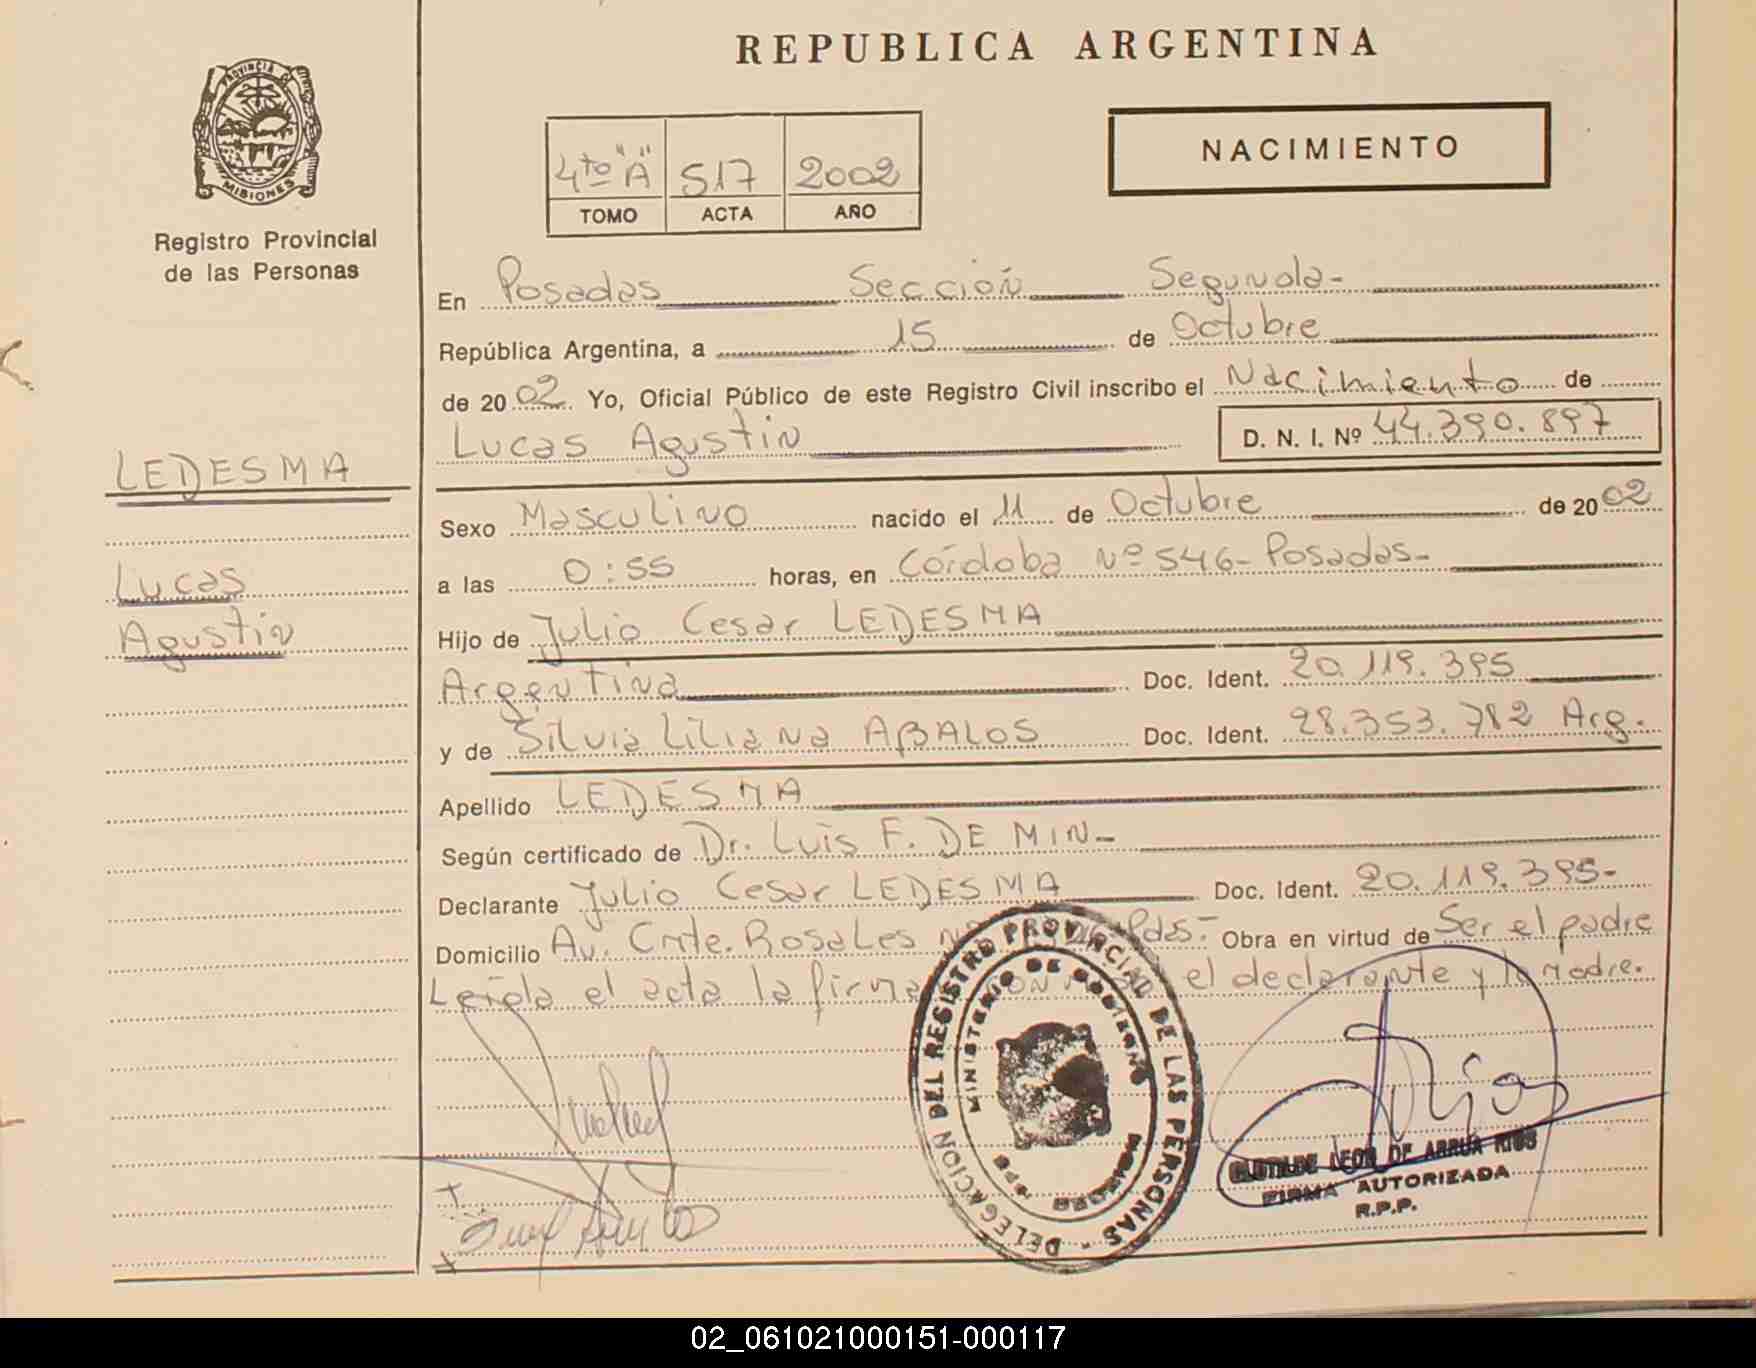 REPUBLICA ARGENTINA
PROVINCIA DE
MISIONES
Registro Provincial
de las Personas
4to "A" 517 2002
TOMO ACTA AÑO
NACIMIENTO
En Posadas Sección Segunda-
República Argentina, a 15 de Octubre
de 2002. Yo, Oficial Público de este Registro Civil inscribo el Nacimiento de
Lucas Agustin D. N. I. Nº 44.390.897
LEDESMA
Lucas
Agustin
Sexo Masculino nacido el 11 de Octubre de 2002
a las 0:55 horas, en Córdoba Nº 546- Posadas-
Hijo de Julio Cesar LEDESMA
Argentina Doc. Ident. 20.119.395
y de Silvia Liliana ABALOS Doc. Ident. 28.353.782 Arg.
Apellido LEDESMA
Según certificado de Dr. Luis F. DE MIN-
Declarante Julio Cesar LEDESMA Doc. Ident. 20.119.395-
Domicilio Av. Cmte. Rosales Pdas.- Obra en virtud de Ser el padre
Leida el acta la firma el declarante y la madre.
DELEGACION DEL REGISTRO PROVINCIAL DE LAS PERSONAS -
MINISTERIO DE GOBIERNO
CLOTILDE LEON DE ARRUA RIOS
FIRMA AUTORIZADA
R.P.P.
02_061021000151-000117